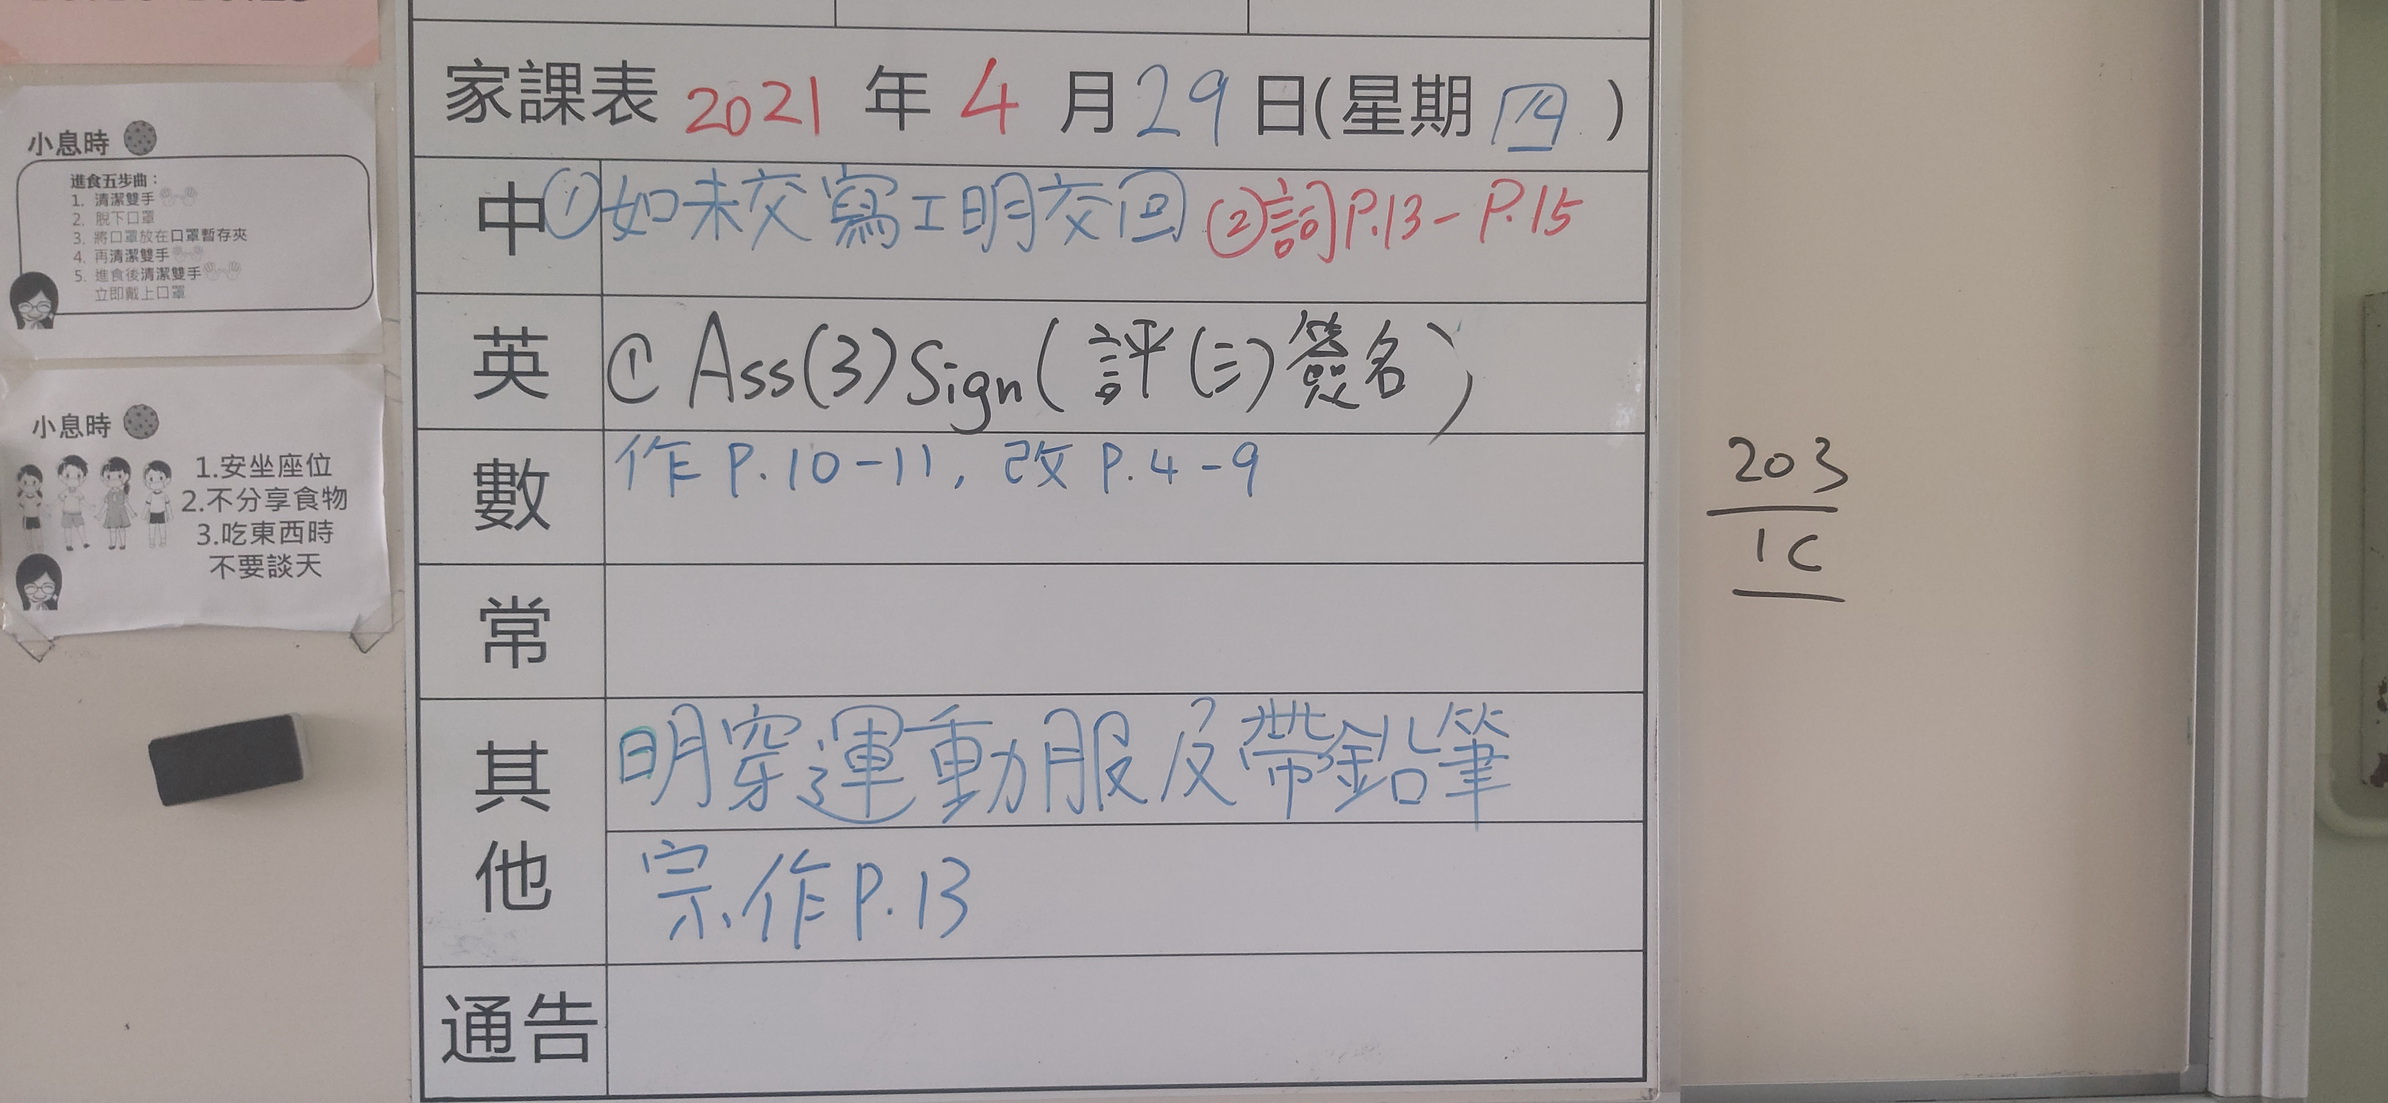 小息時
進食五步曲：
1. 清潔雙手
2. 脫下口罩
3. 將口罩放在口罩暫存夾
4. 再清潔雙手
5. 進食後清潔雙手
立即戴上口罩
小息時
1.安坐座位
2.不分享食物
3.吃東西時
不要談天
家課表 2021 年 4 月 29 日(星期 四 )
中 ①如未交寫工明交回 ②詞P.13-P.15
英 ① Ass(3) Sign (評(三)簽名)
數 作 P.10-11, 改 P.4-9
常
其他 明穿運動服及帶鉛筆
宗.作 P.13
通告
203
1C